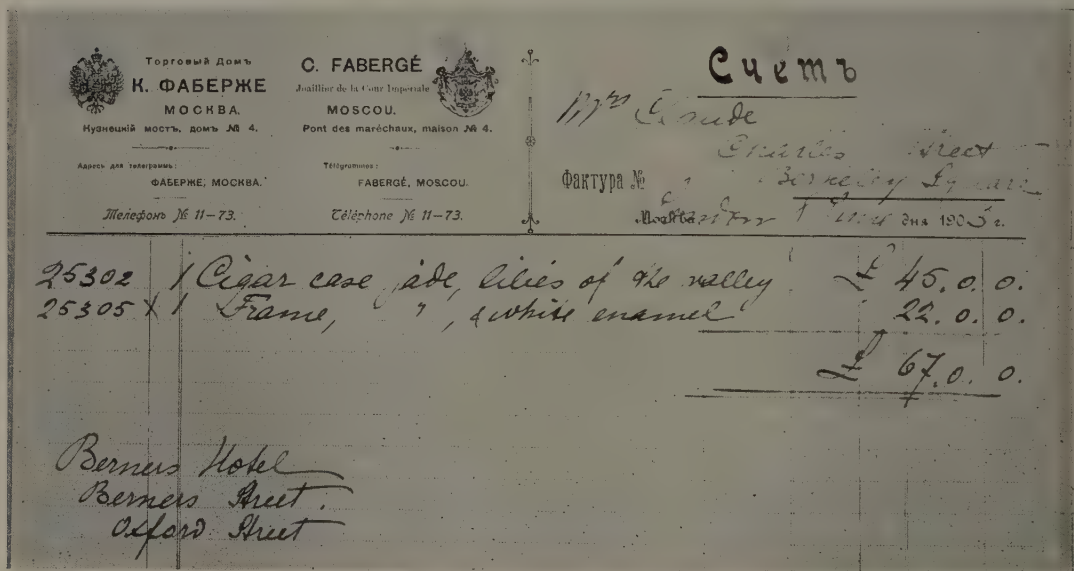 Торговый Домъ
К. ФАБЕРЖЕ
МОСКВА.
Кузнецкій мостъ, домъ № 4.
Адресъ для телеграммъ:
ФАБЕРЖЕ, МОСКВА.
Телефонъ № 11–73.
C. FABERGÉ
Joaillier de la Cour Impériale
MOSCOU.
Pont des maréchaux, maison № 4.
Télégrammes:
FABERGÉ, MOSCOU.
Téléphone № 11–73.
Счетъ
Mrs
Charles Street
Фактура № Berkeley Square
Москва London 1 дня 1905 г.
25302 1 Cigar case jade, lilies of the valley £ 45. 0. 0.
25305 X 1 Frame, " , & white enamel 22. 0. 0.
£ 67. 0. 0.
Berners Hotel
Berners Street.
Oxford Street